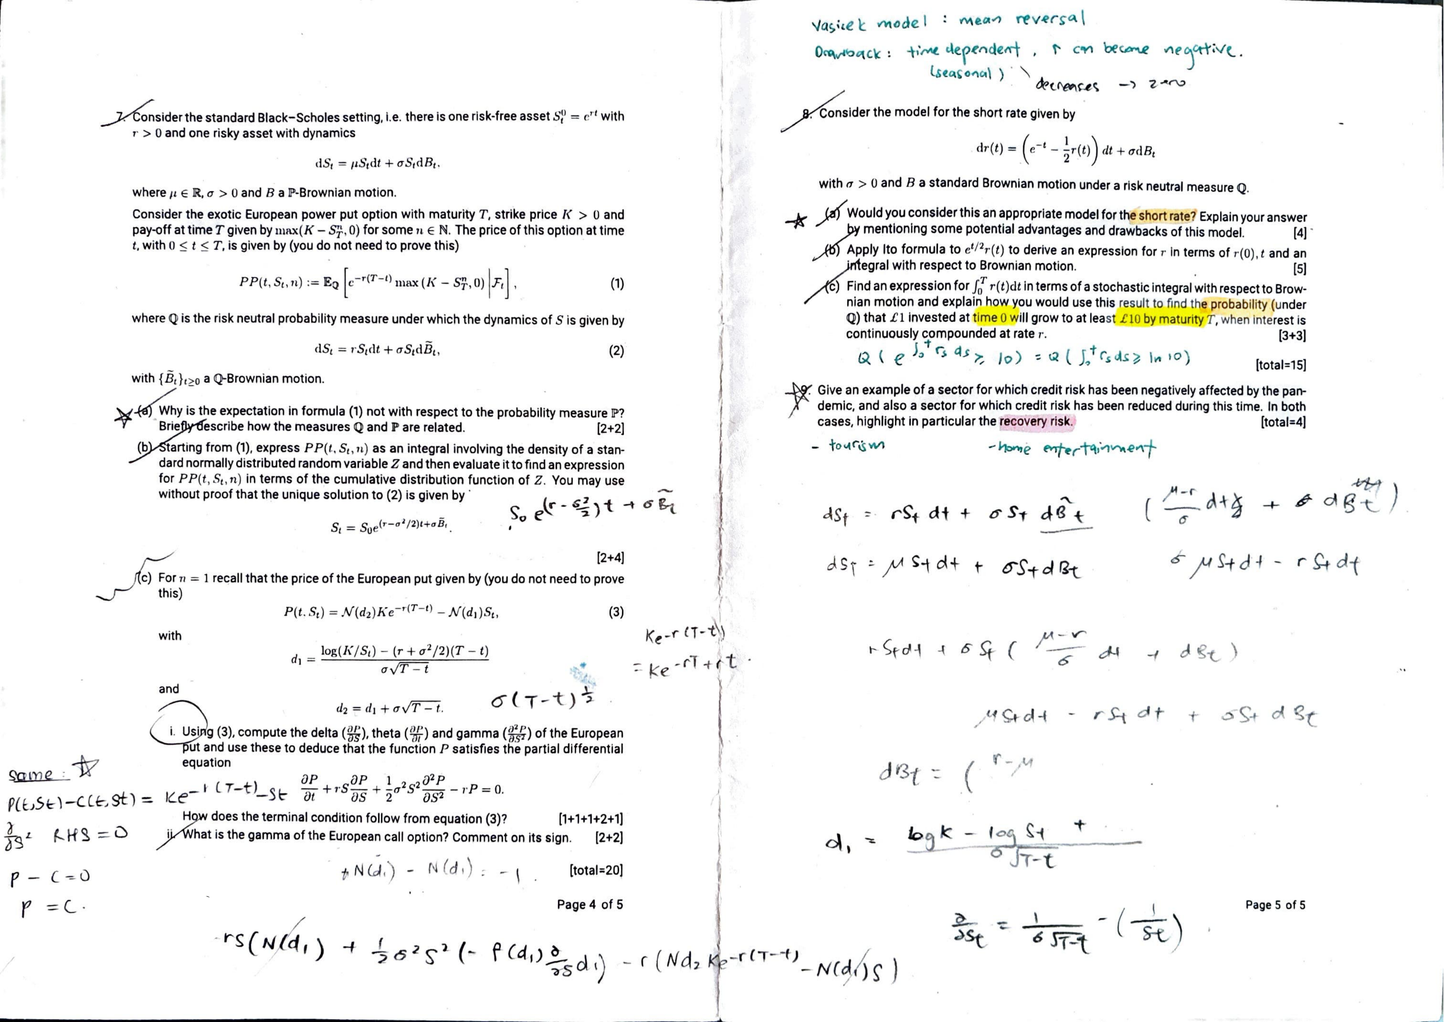 7. Consider the standard Black–Scholes setting, i.e. there is one risk-free asset S_t^0 = e^{rt} with
r > 0 and one risky asset with dynamics
dS_t = μS_t dt + σS_t dB_t,
where μ ∈ ℝ, σ > 0 and B a ℙ-Brownian motion.
Consider the exotic European power put option with maturity T, strike price K > 0 and
pay-off at time T given by max(K − S_T^n, 0) for some n ∈ ℕ. The price of this option at time
t, with 0 ≤ t ≤ T, is given by (you do not need to prove this)
PP(t, S_t, n) := 𝔼_ℚ [e^{−r(T−t)} max (K − S_T^n, 0) | ℱ_t], (1)
where ℚ is the risk neutral probability measure under which the dynamics of S is given by
dS_t = rS_t dt + σS_t dB̃_t, (2)
with {B̃_t}_{t≥0} a ℚ-Brownian motion.
(a) Why is the expectation in formula (1) not with respect to the probability measure ℙ?
Briefly describe how the measures ℚ and ℙ are related. [2+2]
(b) Starting from (1), express PP(t, S_t, n) as an integral involving the density of a stan-
dard normally distributed random variable Z and then evaluate it to find an expression
for PP(t, S_t, n) in terms of the cumulative distribution function of Z. You may use
without proof that the unique solution to (2) is given by
S_0 e^{(r − σ²/2)t + σB̃_t}
S_t = S_0 e^{(r−σ²/2)t+σB̃_t}.
[2+4]
(c) For n = 1 recall that the price of the European put given by (you do not need to prove
this)
P(t, S_t) = N(d_2)Ke^{−r(T−t)} − N(d_1)S_t, (3)
Ke^{-r(T-t)}
with
= Ke^{-rT+rt}
d_1 = (log(K/S_t) − (r + σ²/2)(T − t)) / (σ√(T − t))
and
σ(T-t)^{1/2}
d_2 = d_1 + σ√(T − t).
i. Using (3), compute the delta (∂P/∂S), theta (∂P/∂t) and gamma (∂²P/∂S²) of the European
put and use these to deduce that the function P satisfies the partial differential
equation
∂P/∂t + rS ∂P/∂S + ½σ²S² ∂²P/∂S² − rP = 0.
How does the terminal condition follow from equation (3)? [1+1+1+2+1]
ii. What is the gamma of the European call option? Comment on its sign. [2+2]
[total=20]
same : ☆
P(t,St)-C(t,St) = Ke^{-r(T-t)} - St
∂/∂S² RHS = 0
P - C = 0
P = C.
+ N(d_1) - N(d_1) = -1.
Page 4 of 5
rS(N(d_1) + ½σ²S²(- P(d_1) ∂/∂S d_1) - r(Nd_2 Ke^{-r(T-t)} - N(d_1)S)
Vasicek model : mean reversal
Drawback : time dependent, r can become negative.
(seasonal) decreases → zero
8. Consider the model for the short rate given by
dr(t) = (e^{−t} − ½r(t)) dt + σdB_t
with σ > 0 and B a standard Brownian motion under a risk neutral measure ℚ.
(a) Would you consider this an appropriate model for the short rate? Explain your answer
by mentioning some potential advantages and drawbacks of this model. [4]
(b) Apply Ito formula to e^{t/2}r(t) to derive an expression for r in terms of r(0), t and an
integral with respect to Brownian motion. [5]
(c) Find an expression for ∫_0^T r(t)dt in terms of a stochastic integral with respect to Brow-
nian motion and explain how you would use this result to find the probability (under
ℚ) that £1 invested at time 0 will grow to at least £10 by maturity T, when interest is
continuously compounded at rate r. [3+3]
Q(e^{∫_0^t rs ds} ≥ 10) = Q(∫_0^t rs ds ≥ ln 10)
[total=15]
9. Give an example of a sector for which credit risk has been negatively affected by the pan-
demic, and also a sector for which credit risk has been reduced during this time. In both
cases, highlight in particular the recovery risk. [total=4]
- tourism -home entertainment
dSt = rSt dt + σSt dB̃t
dSt = μSt dt + σSt dBt
σ μSt dt - rSt dt
rStdt + σSt ( (μ-r)/σ dt + dBt )
μStdt - rSt dt + σSt dBt
dBt = ( r-μ
d_1 = (log K - log St +) / (σ√(T-t))
∂/∂St = 1/(σ√(T-t)) - (1/St)
Page 5 of 5